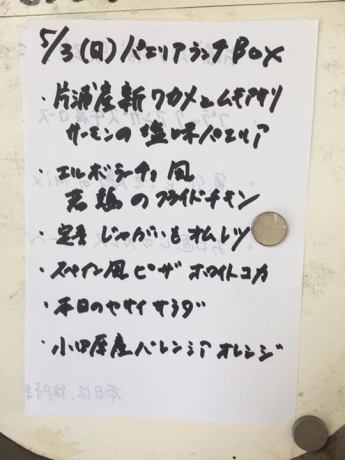 5/3(日)パエリアランチBOX
・片浦産新ワカメとムキアサリ
サーモンの塩味パエリア
・エルボシーチョ風
若鶏のフライドチキン
・定番じゃがいもオムレツ
・スペイン風ピザホワイトコカ
・本日のヤサイサラダ
・小田原産バレンシアオレンジ